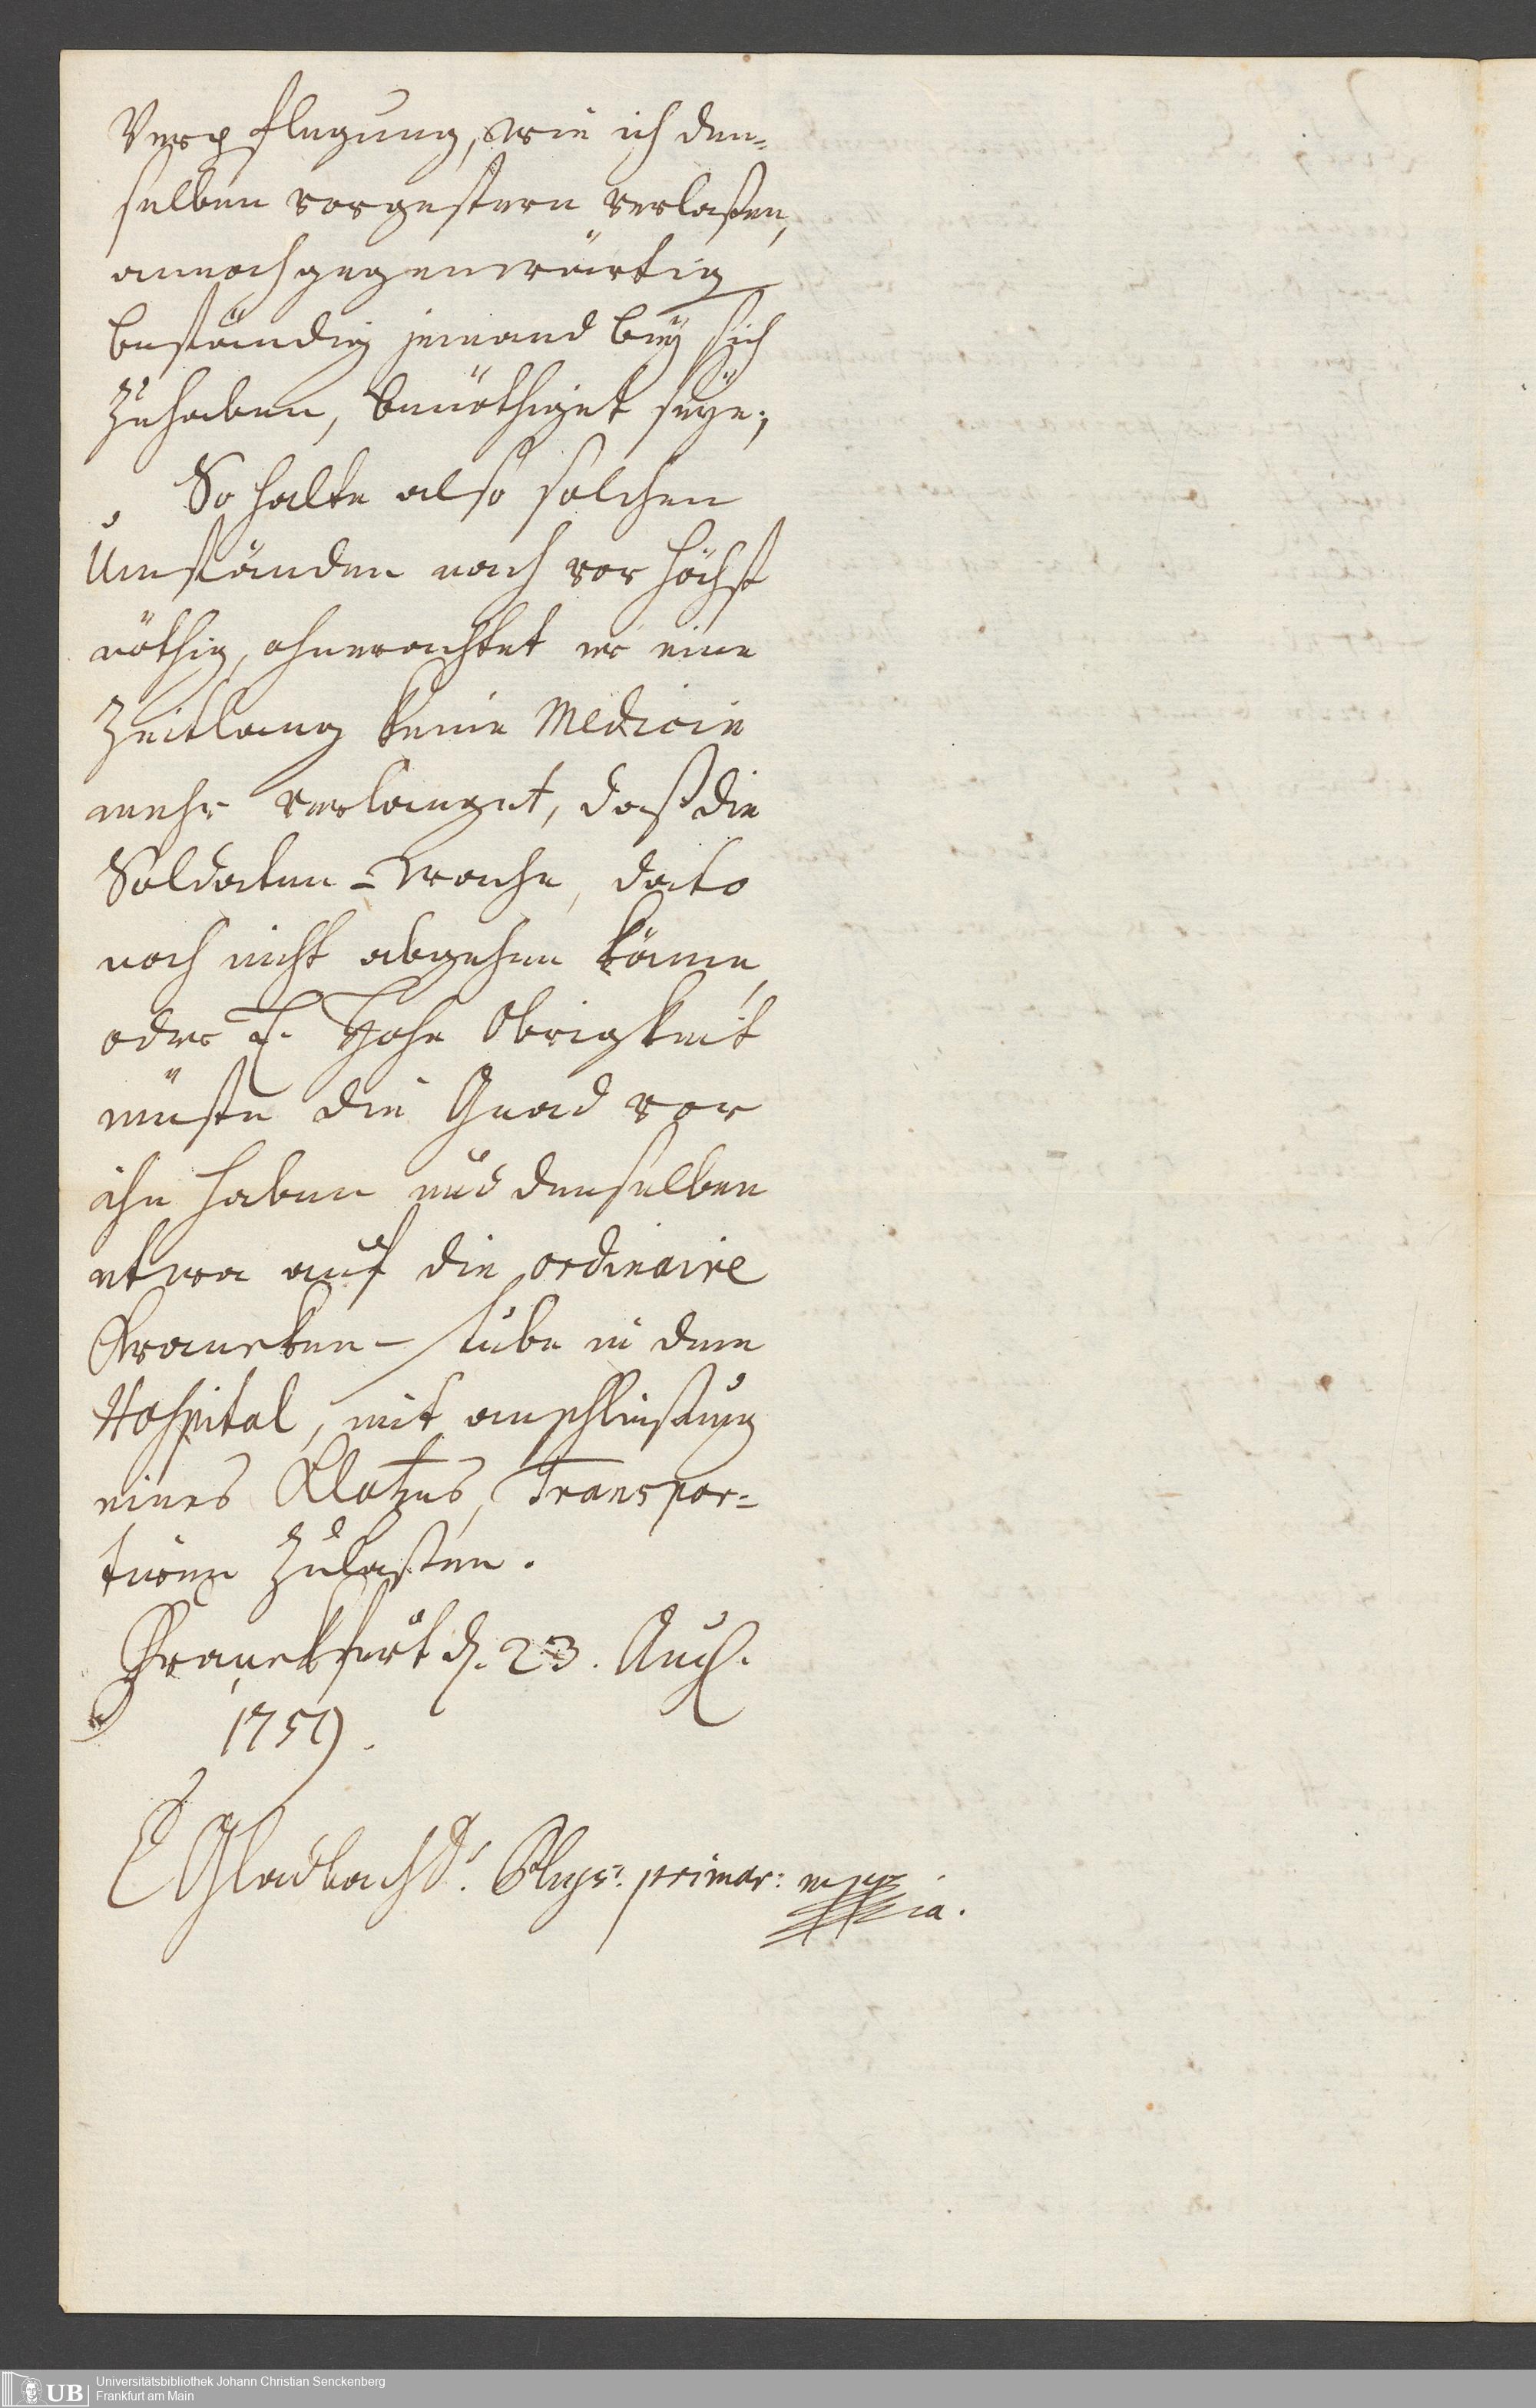 Verpflegung, wie ich den-
selben vorgestern verlaßen,
annoch gegenwärtig
beständig jemand beÿ sich
zuhaben, benöthiget seÿe;
So halte also solchen
Umständen nach vor höchst
nöthig, ohnerachtet er eine
Zeitlang keine Medicin
mehr verlanget, daß die
Soldaten-Wache, dato
noch nicht abgehen könne,
oder E. Hohe Obrigkeit
müste die Gnad vor
ihn haben und denselben
etwa auf die ordinaire
Krancken-stube in dem
Hospital, mit anschließung
eines Klotzes, Transpor-
tiren zulaßen.
Franckfurt d. 23. Aug.
1759.
E Gladbach D. Phys: primar: mppria.
Universitätsbibliothek Johann Christian Senckenberg
Frankfurt am Main
UB